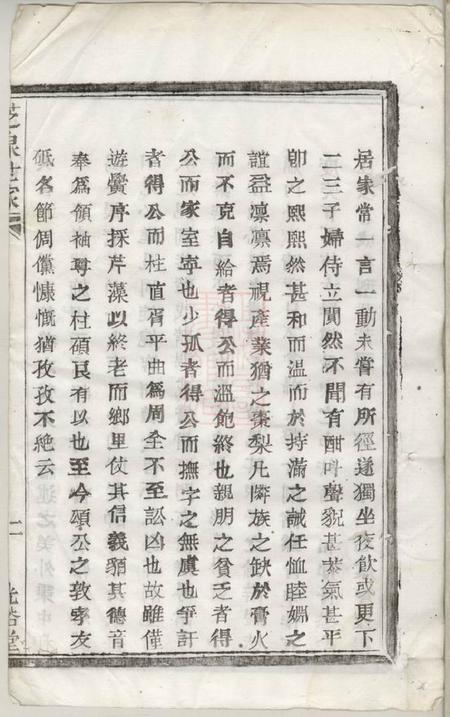 居家常一言一動未嘗有所徑遂獨坐夜飲或更下
二三子婦侍立闃然不聞有酣呌聲貌甚恭氣甚平
卽之熙熙然甚和而溫而於持滿之誡任恤睦婣之
誼益凛凛焉視產業猶之棗梨凡隣族之缺於膏火
而不克自給者得公而溫飽終也親朋之貧乏者得
公而家室寧也少孤者得公而撫字之無虞也爭訐
者得公而枉直胥平曲爲周全不至訟凶也故雖僅
遊黌序採芹藻以終老而鄉里仗其信義類其德音
奉爲領袖尊之柱碩良有以也至今頌公之敦孝友
砥名節倜儻慷慨猶孜孜不絶云
世家
二
堂